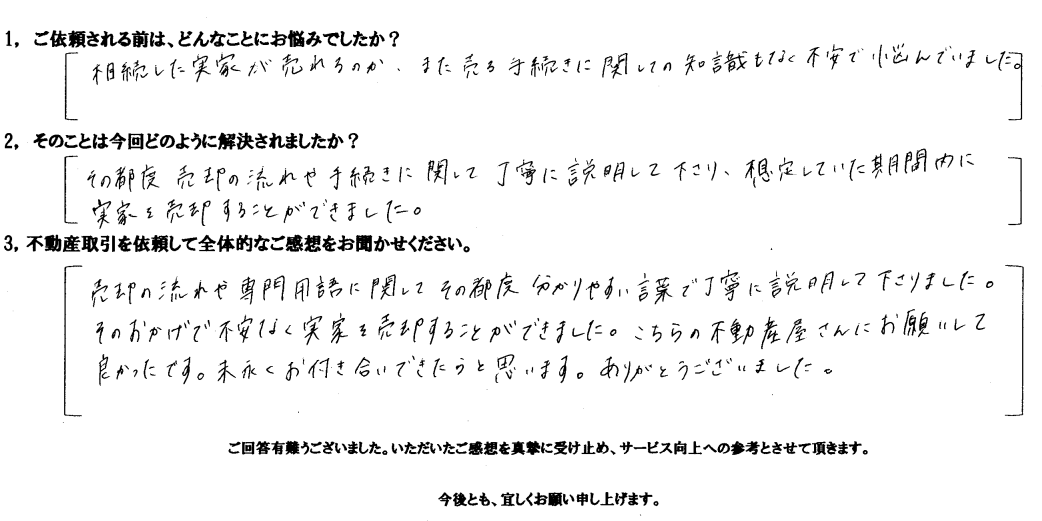 1, ご依頼される前は、どんなことにお悩みでしたか？
相続した実家が売れるのか、また売る手続きに関しての知識もなく不安で悩んでいました。
2, そのことは今回どのように解決されましたか？
その都度 売却の流れや手続きに関して丁寧に説明して下さり、想定していた期間内に
実家を売却することができました。
3, 不動産取引を依頼して全体的なご感想をお聞かせください。
売却の流れや専門用語に関してその都度 分かりやすい言葉で丁寧に説明して下さりました。
そのおかげで不安なく実家を売却することができました。こちらの不動産屋さんにお願いして
良かったです。末永くお付き合いできたらと思います。ありがとうございました。
ご回答有難うございました。いただいたご感想を真摯に受け止め、サービス向上への参考とさせて頂きます。
今後とも、宜しくお願い申し上げます。